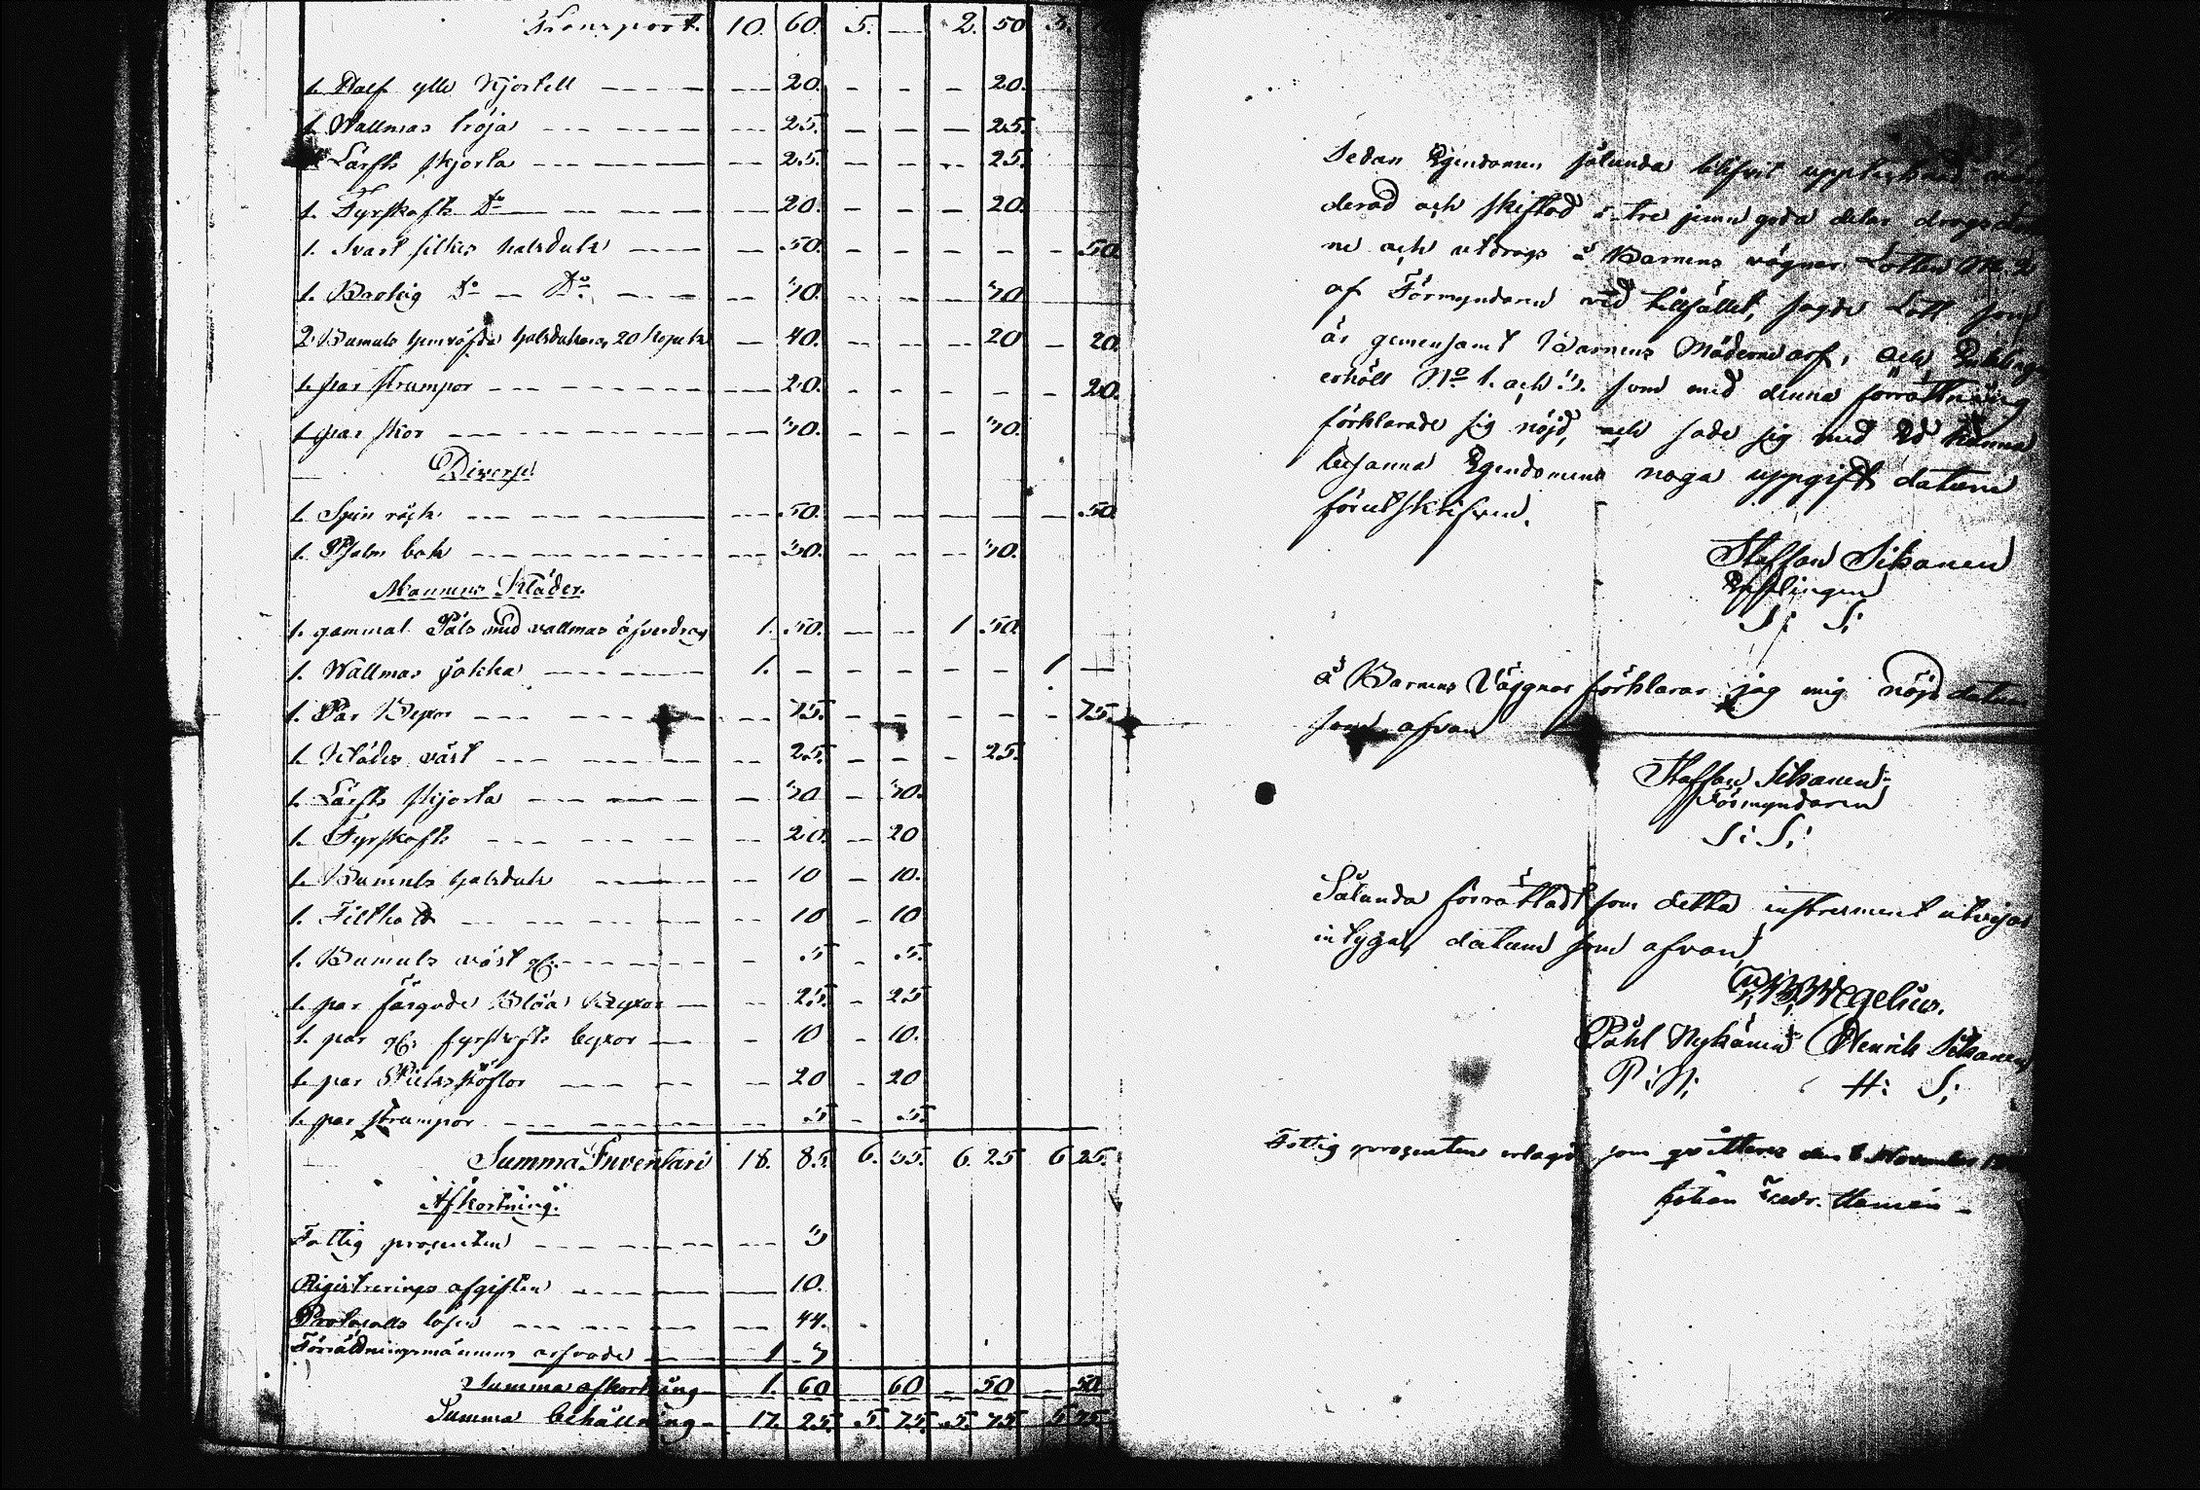 Transport. 10. 60. 5. — 2. 50 3.
1. Half ylle Kjortell — 20. — — — 20.
1. Wallmas tröja — 25. — — — 25.
1 Lärfts skjorta — 25. — — — 25.
1. Fyrskafts Do — 20. — — — 20.
1. Svart silkes halsduk — 50. — — — — — 50.
1. Brokig Do — Do. — 30. — — — 30
2 Bumuls hemväfda halsdukar, 20 kopek — 40. — — — 20 — 20.
1. par strumpor — 20. — — — — — 20.
1. par skor — 30. — — — 30.
Diverse
1. Spin råck — 50. — — — — — 50.
1. Psalm bok — 30. — — — 30.
Mannens Kläder.
1. gammal Päls med vallmas öfverdrag 1. 50. — — 1 50.
1. Wallmas jakka 1. — — — — — 1 —
1. Par Byxor — 75. — — — — — 75.
1. Klädes väst — 25. — — — 25.
1. Lärfts skjorta — 30 — 30.
1. Fyrskafts — 20. — 20
1. Bumuls halsduk — 10 — 10.
1. Filthatt — 10 — 10
1. Bumuls väst gl. — 5 — 5.
1. par färgade Blåa Byxor — 25. — 25
1. par gl. fyrskafts byxor — 10 — 10.
1. par Pieksstöflor — 20 — 20
1. par strumpor — 5 — 5.
Summa Inventarii 18. 85. 6. 35. 6. 25 6 25.
Afkortning.
Fattig procenten — 3
Registrerings afgiften — 10.
Protocolls lösen — 44.
Förrättningsmännens arfvode 1 3
Summa afkortning — 1. 60 60 — 50 — 50
Summa behållning — 17. 25. 5. 75. 5. 75 5 75.
Sedan Egendomen sålunda blifvit upptecknad
derad och skiftad i tre jemn goda delar drogs
ne och utdrogs å Barnens vägnar Lotten No 2
af Förmyndaren vid tillfället, sagde Lott som
är gemensamt Barnens Möderne arf, och Enklingen
erhöll No 1. och 3. som med denna förrättning
förklarade sig nöjd, och sade sig med Ed kunna
besanna Egendomens noga uppgift datum
förutskrifven.
Staffan Sikanen
Enklingen
S: S:
å Barnens Vägnar förklarar jag mig nöjd datum
som ofvan
Staffan Sikanen
Förmyndaren
S: S:
Sålunda förrättadt som detta instrument utvisar
intyga, datum som ofvan
Wegelius.
Påhl Nykänen Henrik Sikanen
P: N: H: S:
Fattig procenten erlagd som qvitteras den 8 November
Johan Fredr.